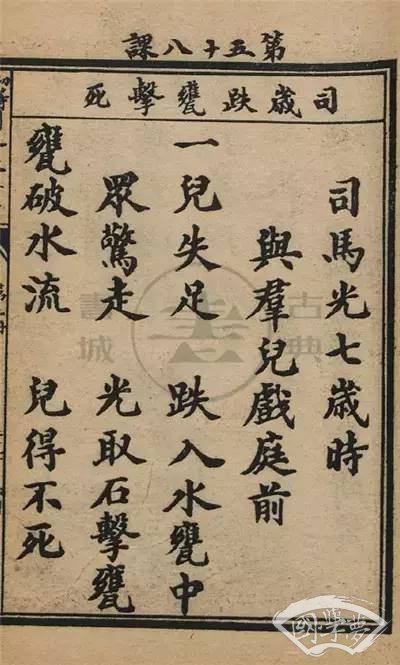 第五十八課
司歲跌甕擊死
司馬光七歲時
與羣兒戲庭前
一兒失足 跌入水甕中
眾驚走 光取石擊甕
甕破水流 兒得不死
古典書城
國學夢